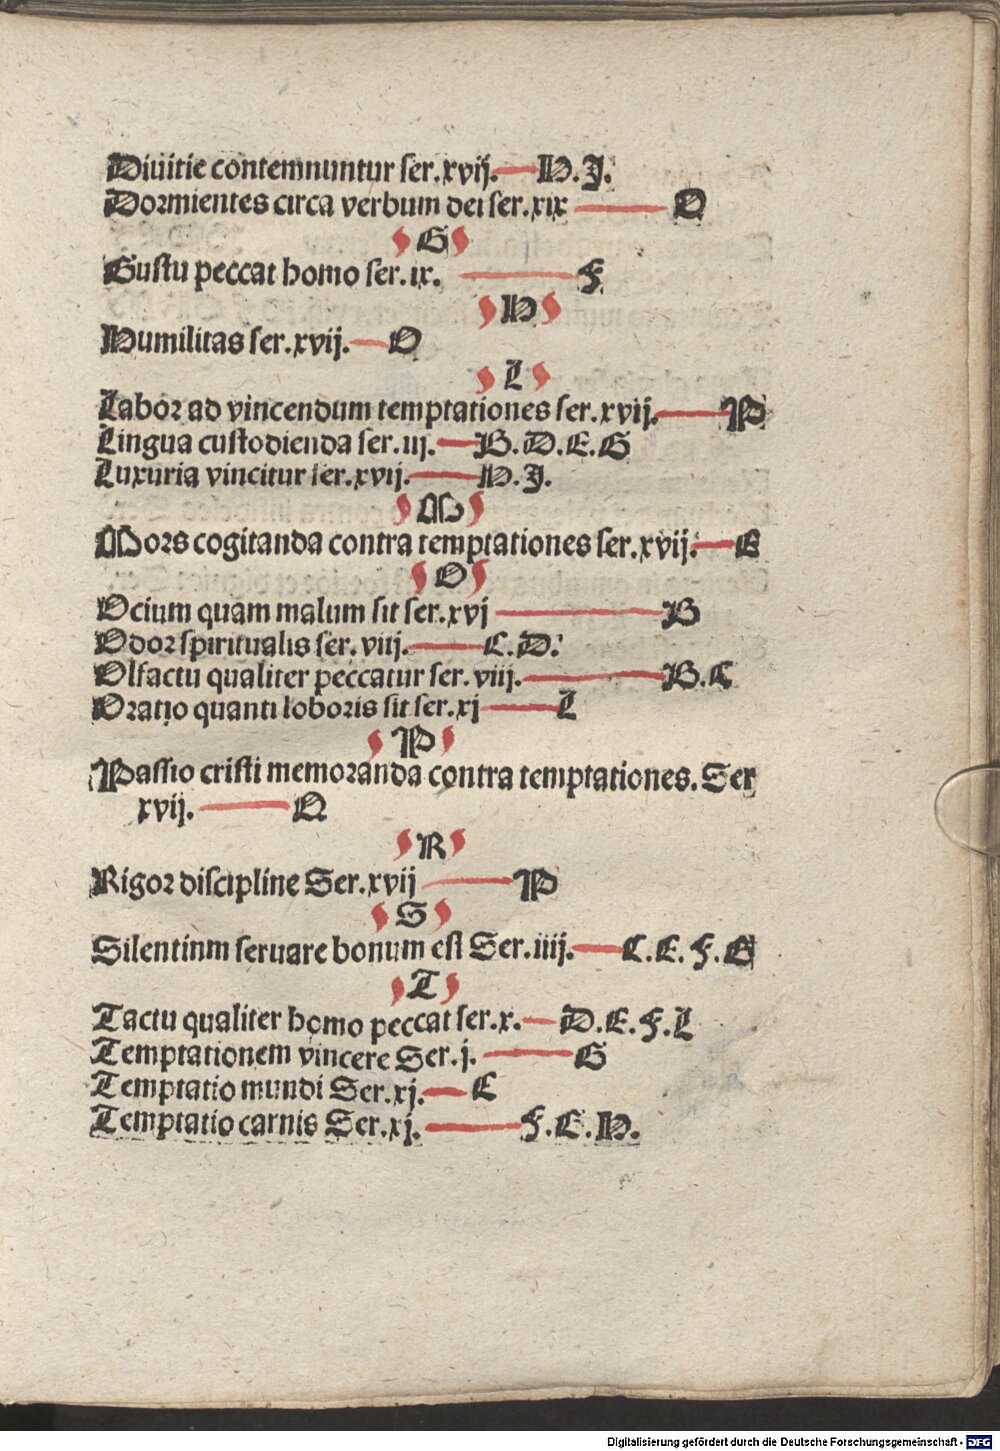 Diuitie contemnuntur ser. xvij. H. J.
Dormientes circa verbum dei ser. xix O
G
Gustu peccat homo ser. ix. F
H
Humilitas ser. xvij. O
L
Labor ad vincendum temptationes ser. xvij. P
Lingua custodienda ser. iij. B. D. E. G
Luxuria vincitur ser. xvij. H. J.
M
Mors cogitanda contra temptationes ser. xvij. E
O
Ocium quam malum sit ser. xvj B
Odor spiritualis ser. viij. C. D.
Olfactu qualiter peccatur ser. viii. B. C
Oratio quanti loboris sit ser. xj L
P
Passio cristi memoranda contra temptationes. Ser
xvij. Q
R
Rigor discipline Ser. xvij P
S
Silentinm seruare bonum est Ser. iiij. C. E. F. G
T
Tactu qualiter homo peccat ser. x. D. E. F. L
Temptationem vincere Ser. j. G
Temptatio mundi Ser. xj. C
Temptatio carnis Ser. xj. F. C. H.
Digitalisierung gefördert durch die Deutsche Forschungsgemeinschaft - DFG